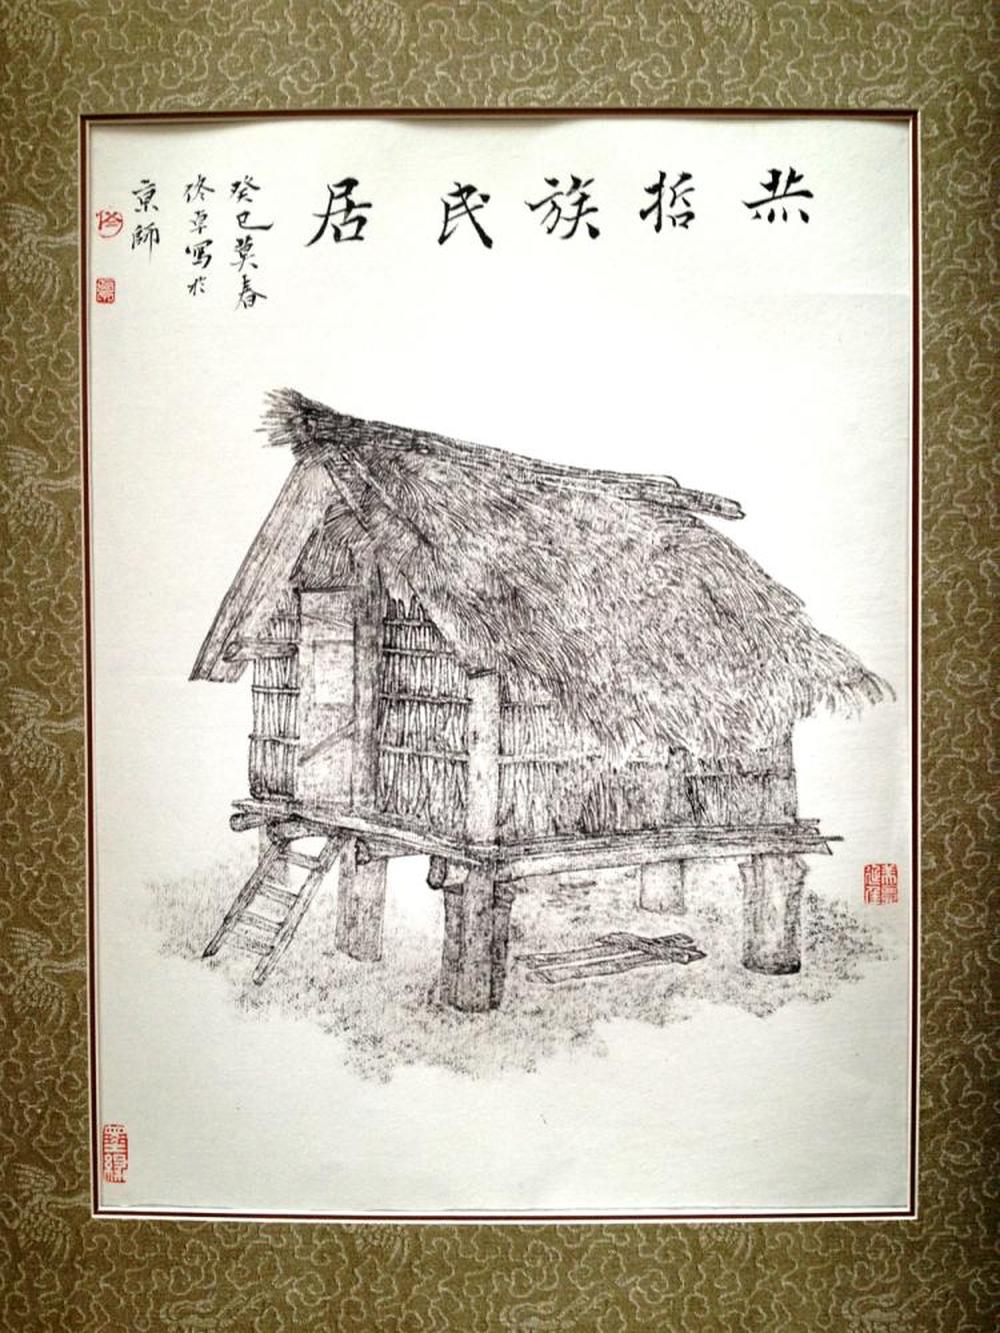 赫哲族民居
癸巳莫春
佟卓写於
京師